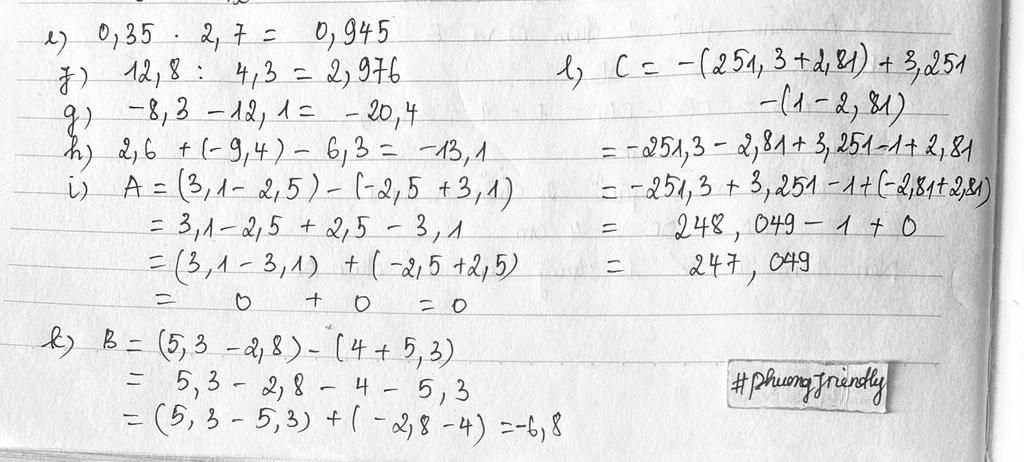 e) 0,35 . 2,7 = 0,945
f) 12,8 : 4,3 = 2,976
g) -8,3 - 12,1 = -20,4
h) 2,6 + (-9,4) - 6,3 = -13,1
i) A = (3,1 - 2,5) - (-2,5 + 3,1)
= 3,1 - 2,5 + 2,5 - 3,1
= (3,1 - 3,1) + (-2,5 + 2,5)
= 0 + 0 = 0
k) B = (5,3 - 2,8) - (4 + 5,3)
= 5,3 - 2,8 - 4 - 5,3
= (5,3 - 5,3) + (-2,8 - 4) = -6,8
l) C = -(251,3 + 2,81) + 3,251
-(1 - 2,81)
= -251,3 - 2,81 + 3,251 - 1 + 2,81
= -251,3 + 3,251 - 1 + (-2,81 + 2,81)
= 248,049 - 1 + 0
= 247,049
#phuongfriendly